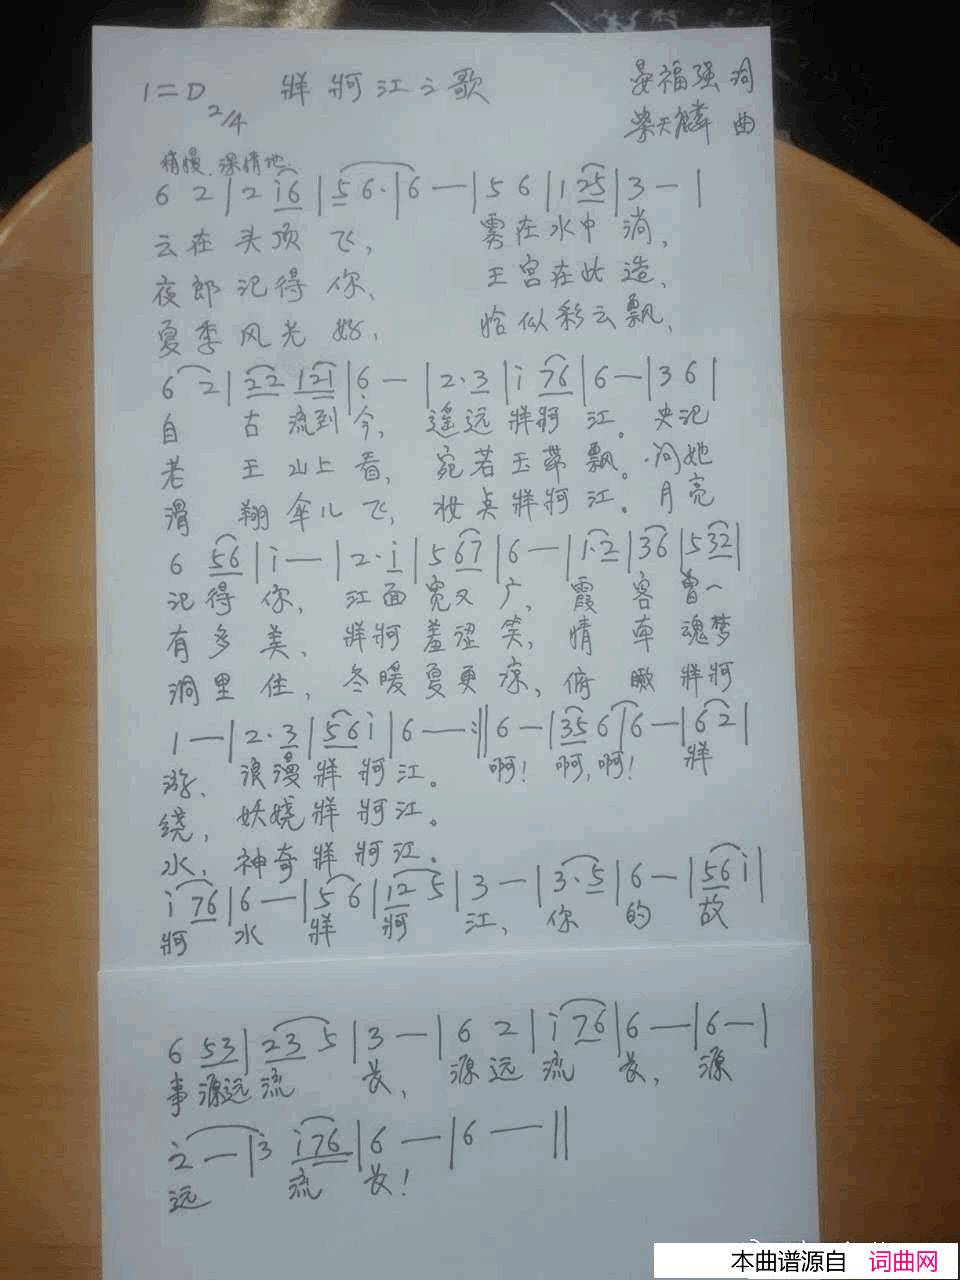 1=D 2/4 牂牁江之歌 晏福强 词
柴天麟 曲
稍慢 深情地
6 2 | 2 i6 | 5 6· | 6 — | 5 6 | 1 25 | 3 — |
云在头顶飞, 雾在水中淌,
夜郎记得你, 王宫在此造,
夏季风光好, 恰似彩云飘,
6 2 | 22 121 | 6 — | 2·3 | i 76 | 6 — | 3 6 |
自古流到今, 遥远牂牁江。史记
老王山上看, 宛若玉带飘。问她
滑翔伞儿飞, 妆点牂牁江。月亮
6 56 | i — | 2·i | 5 67 | 6 — | 1·2 | 36 | 5 32 |
记得你, 江面宽又广, 霞客曾一
有多美, 牂牁羞涩笑, 情牵魂梦
洞里住, 冬暖夏更凉, 俯瞰牂牁
1 — | 2·3 | 56 i | 6 — :‖ 6 — | 35 6 | 6 — | 6 2 |
游, 浪漫牂牁江。 啊! 啊,啊! 牂
绕, 妖娆牂牁江。
水, 神奇牂牁江。
i 76 | 6 — | 5 6 | 12 5 | 3 — | 3·5 | 6 — | 56 i |
牁水牂牁江, 你的故
6 53 | 23 5 | 3 — | 6 2 | i 76 | 6 — | 6 — |
事源远流长, 源远流长, 源
2 — | 3 i76 | 6 — | 6 — ‖
远流长!
本曲谱源自 词曲网